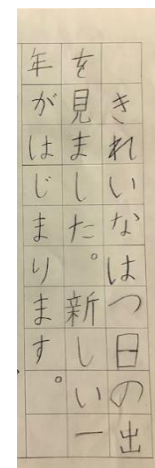 きれいなはつ日の出
を見ました。新しい一
年がはじまります。